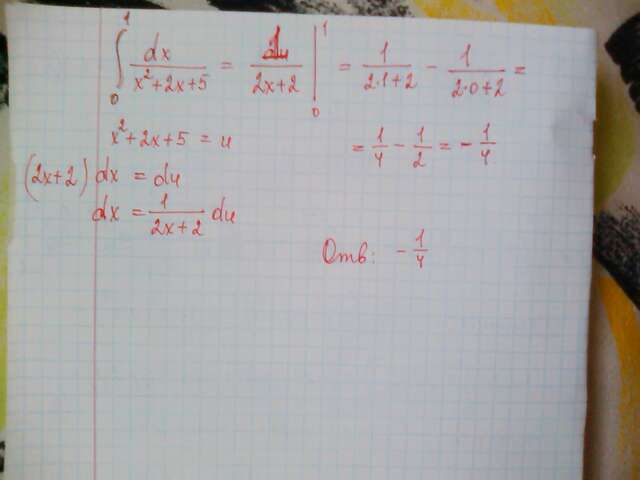 ∫₀¹ dx/(x²+2x+5) = du/(2x+2) |₀¹ = 1/(2·1+2) − 1/(2·0+2) =
x²+2x+5 = u
= 1/4 − 1/2 = − 1/4
(2x+2) dx = du
dx = 1/(2x+2) du
Отв: − 1/4